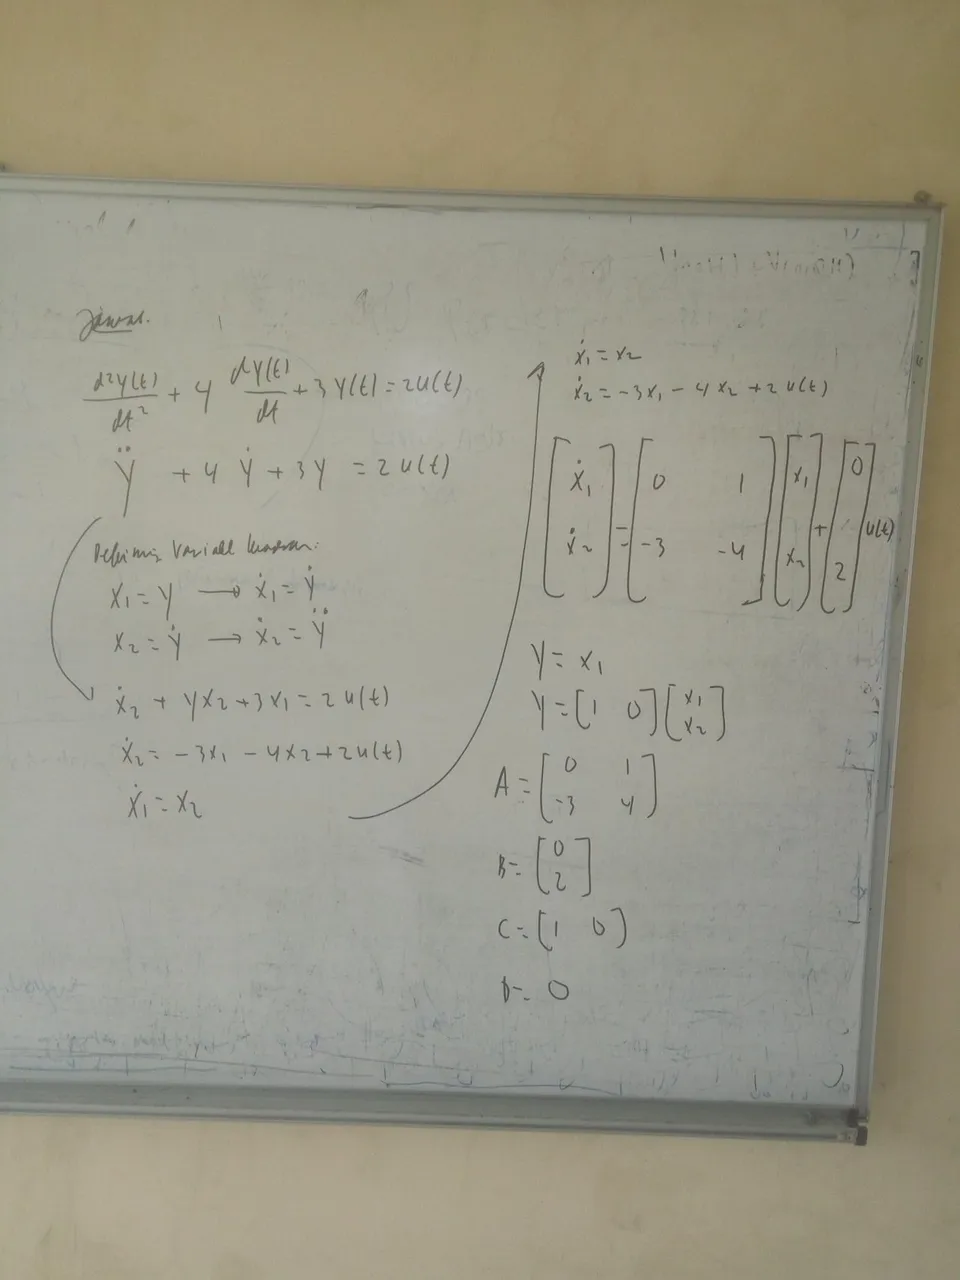 Jawab.
d²y(t)/dt² + 4 dy(t)/dt + 3y(t) = 2u(t)
Ÿ + 4 Ẏ + 3y = 2u(t)
Definisi Variabel keadaan:
x₁ = y → ẋ₁ = ẏ
x₂ = ẏ → ẋ₂ = ÿ
ẋ₂ + 4x₂ + 3x₁ = 2u(t)
ẋ₂ = -3x₁ - 4x₂ + 2u(t)
ẋ₁ = x₂
ẋ₁ = x₂
ẋ₂ = -3x₁ - 4x₂ + 2u(t)
[ẋ₁; ẋ₂] = [0 1; -3 -4] [x₁; x₂] + [0; 2] u(t)
y = x₁
y = [1 0] [x₁; x₂]
A = [0 1; -3 4]
B = [0; 2]
C = [1 0]
D = 0